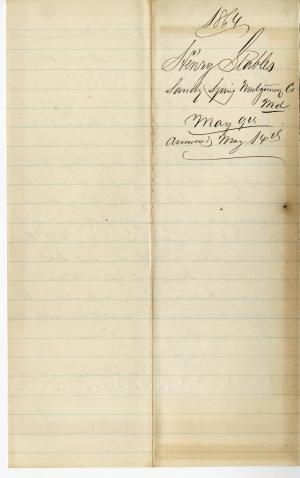 1864
Henry Stables
Sandy Spring Montgomery Co
Md
May 9th
Answered May 14th